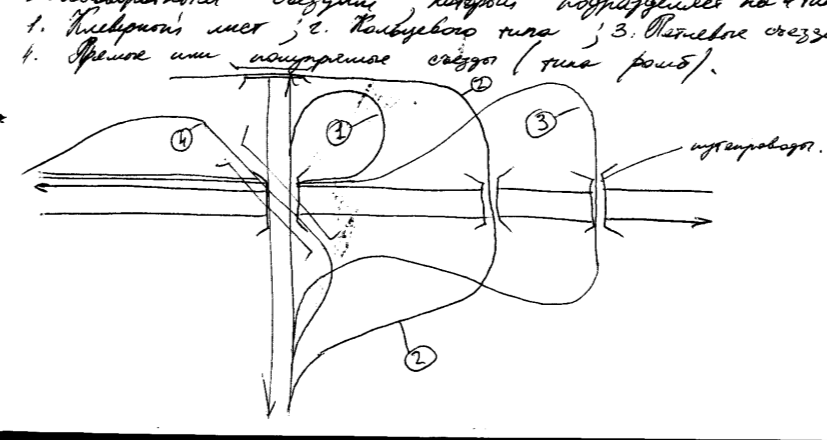 съездами, который подразделяет на
1. Клеверный лист ; 2. Кольцевого типа ; 3. Петлевые съезды
4. Прямые или полупрямые съезды (типа ромб).
2
1
3
4
путепроводы.
2